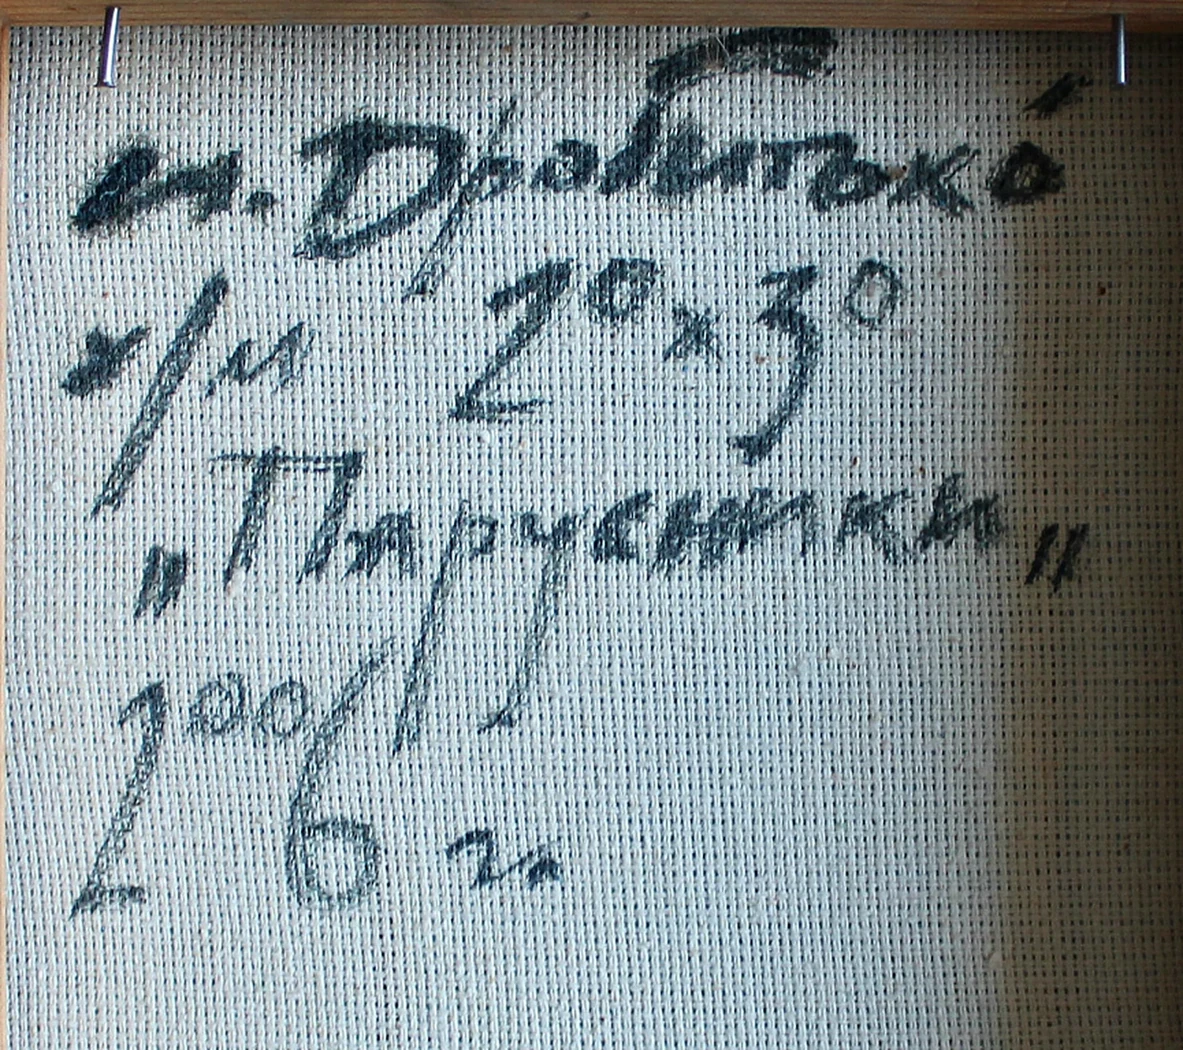 М. Дробитько
х/м 20 x 30
„Парусники„
2006 г.